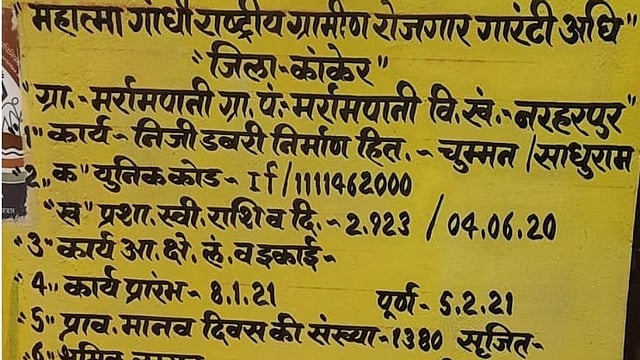 "महात्मा गांधी राष्ट्रीय ग्रामीण रोजगार गारंटी अधि"
"जिला-कांकेर"
"ग्रा.- मर्रामपानी ग्रा.पं.- मर्रामपानी वि.खं.- नरहरपुर"
"1" कार्य - निजी डबरी निर्माण हित.- चुम्मन / साधुराम
"2, क" युनिक कोड - If/1111462000
"ख" प्रशा. स्वी. राशि व दि.- 2.923 / 04.06.20
"3" कार्य आ. क्षे. लं. व इकाई-
"4" कार्य प्रारंभ - 8.1.21 पूर्ण- 5.2.21
"5" प्राव. मानव दिवस की संख्या - 1380 सृजित-
"6" श्रमिक